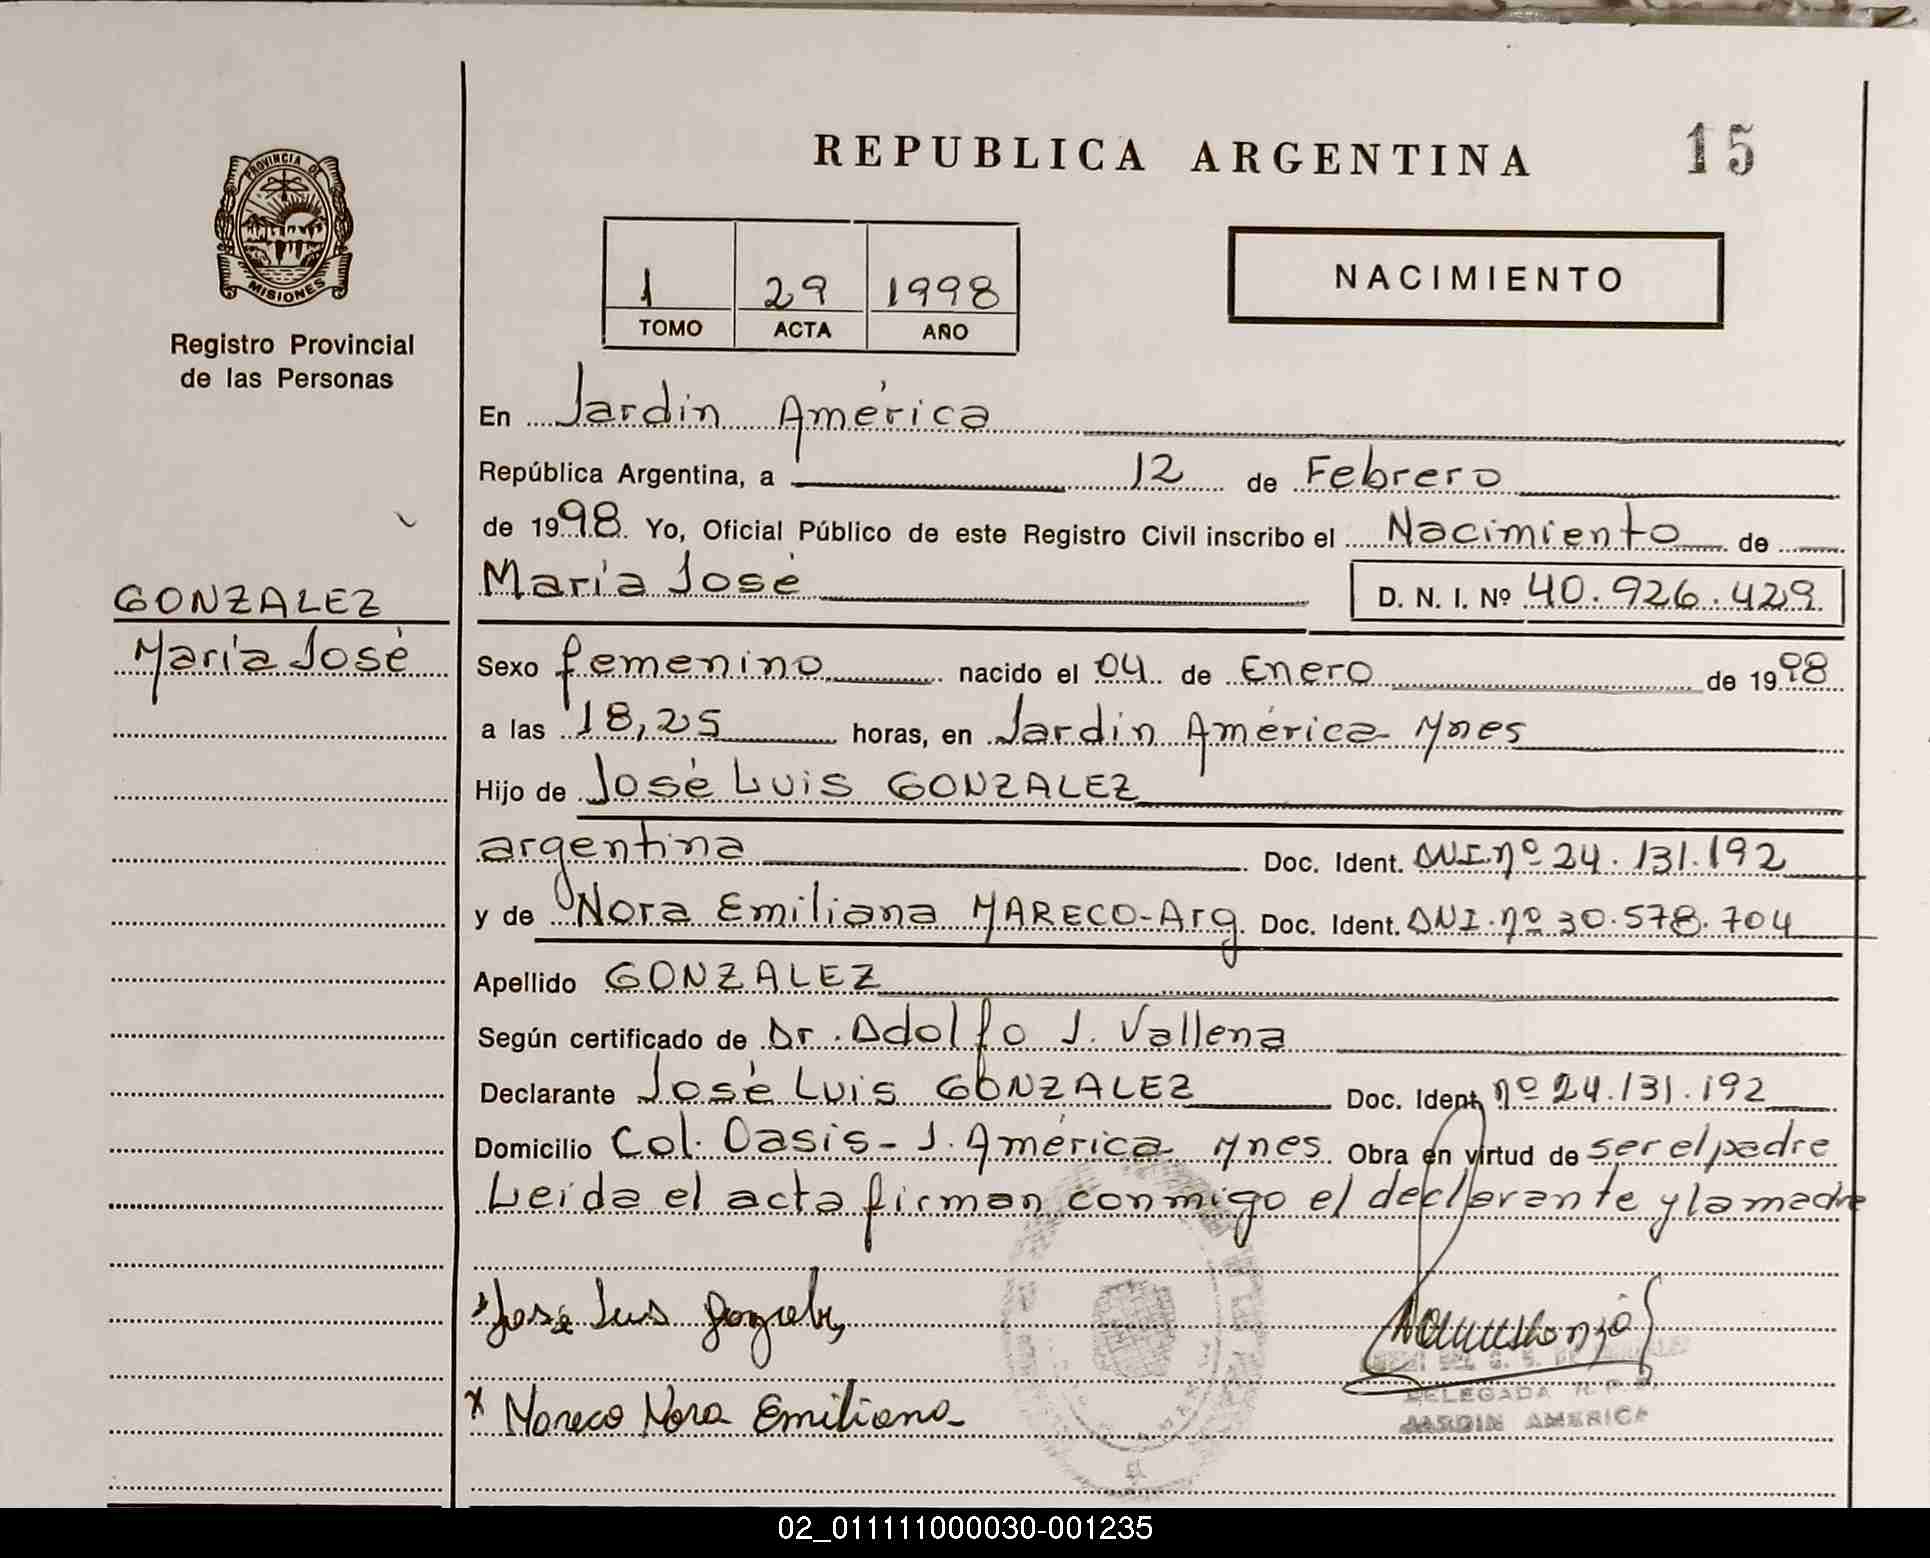 REPUBLICA ARGENTINA
15
PROVINCIA DE
MISIONES
Registro Provincial
de las Personas
1 29 1998
TOMO ACTA AÑO
NACIMIENTO
En Jardín América
República Argentina, a 12 de Febrero
de 1998. Yo, Oficial Público de este Registro Civil inscribo el Nacimiento de
María José D. N. I. Nº 40.926.429
GONZALEZ
María José
Sexo femenino nacido el 04 de Enero de 1998
a las 18,25 horas, en Jardín América Mnes
Hijo de José Luis GONZALEZ
argentina Doc. Ident. DNI.nº 24.131.192
y de Nora Emiliana MARECO-Arg. Doc. Ident. DNI.nº 30.578.704
Apellido GONZALEZ
Según certificado de Dr. Adolfo J. Vallena
Declarante José Luis GONZALEZ Doc. Ident. nº 24.131.192
Domicilio Col. Oasis - J. América Mnes Obra en virtud de ser el padre
Leída el acta firman conmigo el declarante y la madre
José Luis
x Mareco Nora Emiliana
DELEGADA R. P. P.
JARDIN AMERICA
02_011111000030-001235